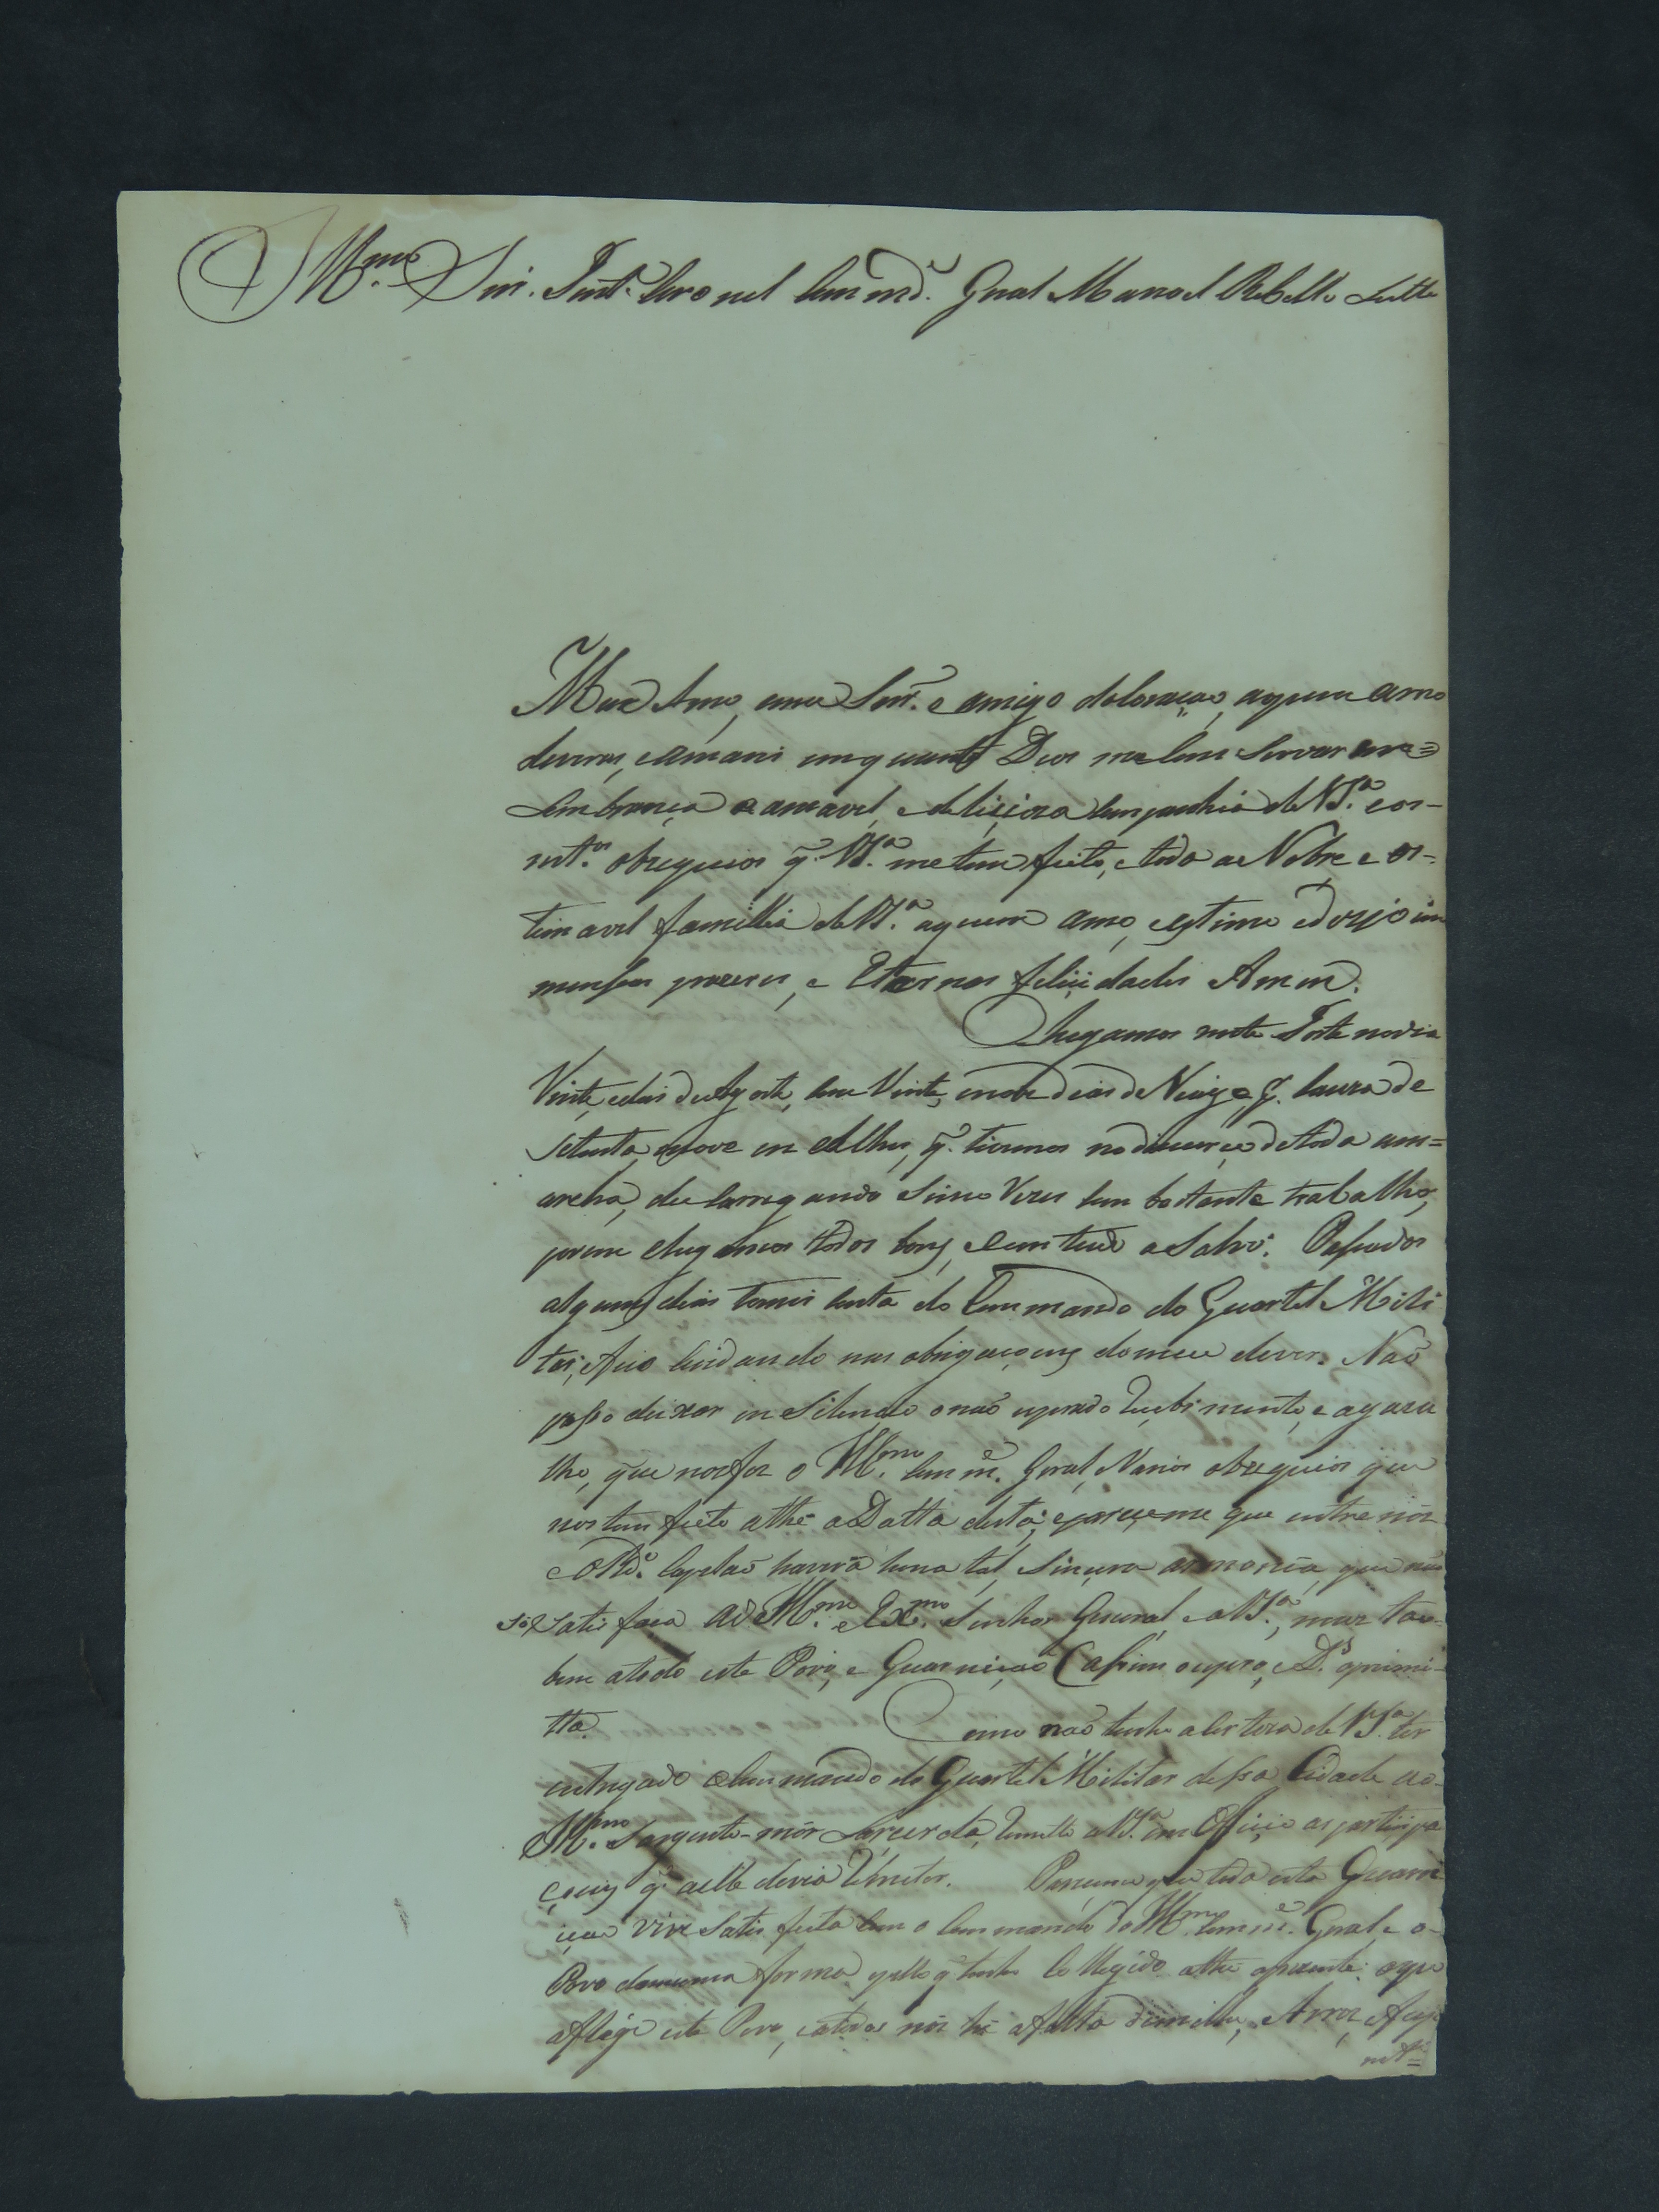 Ill.mo Snr. Tent.e Coronel Comm.de Gnal Manoel Rebello Leitte
Meu Amo, meu Snr. e amigo do Coração, aquem amo
deveras, e amarei em quanto Deos me Comservar em a
Lembrança a amavel, e dilicioza Companhia de VS.a e os
mt.os obzequios q. VS.a me tem feito, e toda a Nobre e es-
timavel familia de VS.a aquem amo, estimo e dezejo im
mensos prazeres, e Eternas felicidades Amen.
Chegamos neste Forte no dia
Vinte, e dois de Agosto, com Vinte, e nove dias de Viage, q. cauza de
setenta, e nove en calhes, q. tivemos no discurço de toda a m-
archa, descarregando Sinco Vezes com bastante trabalho,
porem chegamos todos bons, e com tudo a Salvo. Passados
alguns dias tomei conta do Commando do Quartel Mili
tar, e fico cuidando nas obrigaçoens do meu dever. Naõ
posso deixar en Silencio o naõ esperado recebimento, e agaza
lho, que nos fez o Ill.mo Comm.e Geral, Varios obzequios que
nos tem feito athe a Datta desta; e pareceme que entre nós
e o R.do Capelaõ haverá huma tal sincera armonia, que naõ
só Satisfaça ao Ill.mo e Ex.mo Senhor General, e a VS.a, mas tam
bem a todo este Povo, e Guarniçaõ (assim o espero, e D.s o primi-
tta.
Como naõ tenho a certeza de VS.a ter
entregado o Commando do Quartel Militar dessa Cidade ao
Ill.mo Sargento-mór Lacerda, remetto a VS.a em Oficio as partiçipa
çoens q. a elle devia remeter. Pareceme que toda esta Guarni
çaõ vive Satisfeita com o Commando do Ill.mo Comm.e Geral e o
Povo da mesma forma pello q. tenho Collegido athe o prezente: o que
aflige este Povo, e a todos nós hé a falta de milho, Arroz, e feijaõ